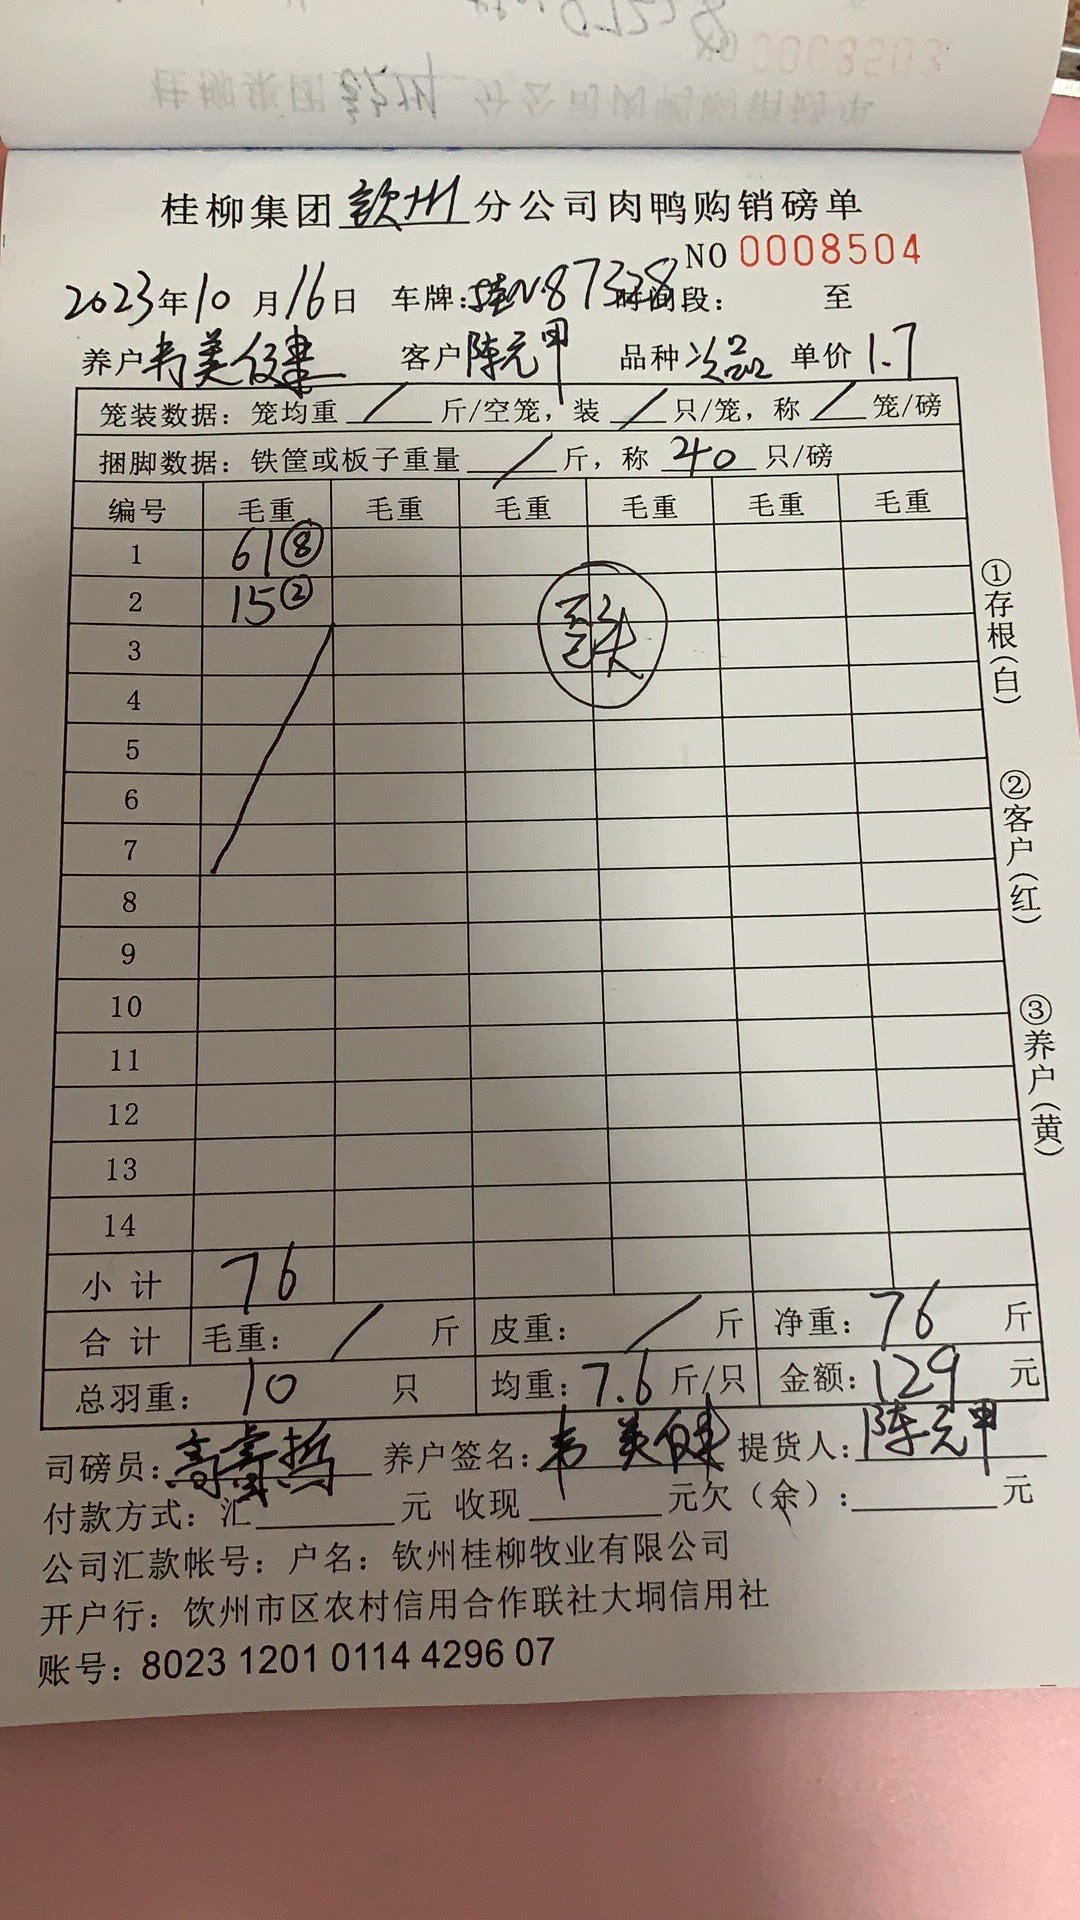 桂柳集团钦州分公司肉鸭购销磅单
NO 0008504
2023年10月16日 车牌:桂N·87328时间段: 至
养户韦美健 客户陈元甲 品种次品 单价1.7
笼装数据:笼均重/斤/空笼,装/只/笼,称/笼/磅
捆脚数据:铁筐或板子重量/斤,称40只/磅
编号 毛重 毛重 毛重 毛重 毛重 毛重
1 61⑧
2 15②
3
4
5
6
7
8
9
10
11
12
13
14
小计 76
合计 毛重:/斤 皮重:/斤 净重:76斤
总羽重:10只 均重:7.6斤/只 金额:129元
司磅员: 养户签名:韦美健 提货人:陈元甲
付款方式:汇 元 收现 元欠(余): 元
公司汇款帐号:户名:钦州桂柳牧业有限公司
开户行:饮州市区农村信用合作联社大垌信用社
账号:8023 1201 0114 4296 07
①存根(白)
②客户(红)
③养户(黄)